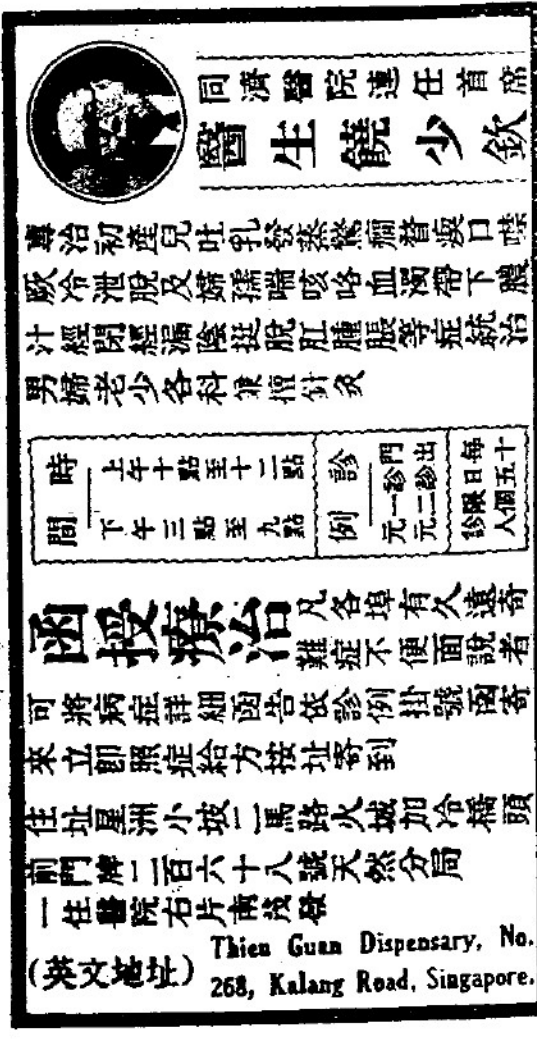 同濟醫院連任首席
醫生饒少欽
專治初產兒吐乳發蒸驚癇瞀瘈口噤
厥冷泄脫及婦孺喘咳咯血濁帶下膿
汁經閉經漏陰挺脫肛腫脹等症統治
男婦老少各科兼擅針灸
時間
上午十點至十二點
下午三點至九點
診例
門診一元
出診二元
每日限診
十五個人
函授療治
凡各埠有久遠奇
難症不便面說者
可將病症詳細函告依診例掛號函寄
來立即照症給方按址寄到
住址星洲小坡二馬路火城加冷橋頭
前門牌二百六十八號天然分局
一住醫院右片南茂發
(英文地址)
Thien Guan Dispensary, No.
268, Kalang Road, Singapore.